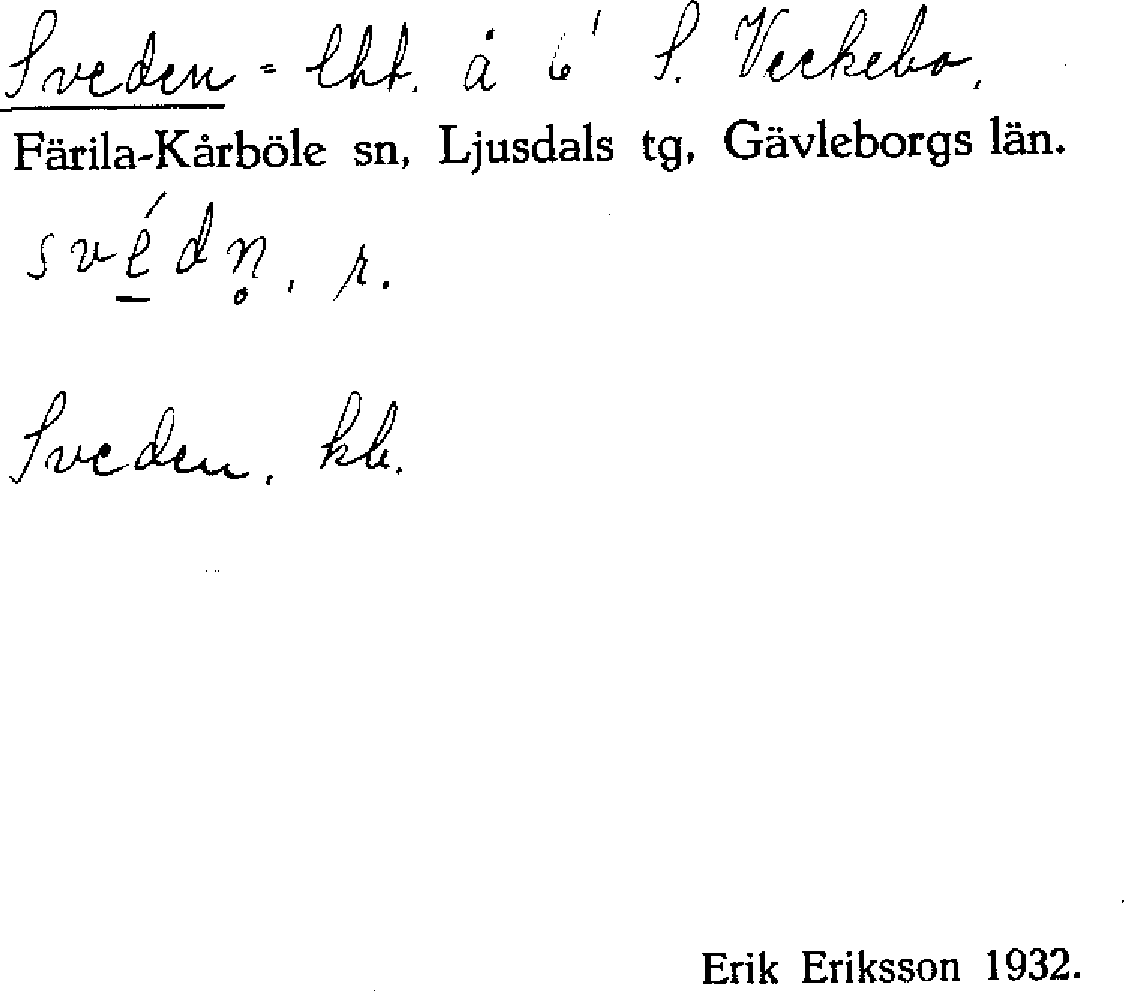 Sveden = lht. å 6' S. Veckebo.
Färila-Kårböle sn, Ljusdals tg, Gävleborgs län.
své̱dn̥, r.
Sveden. kb.
Erik Eriksson 1932.